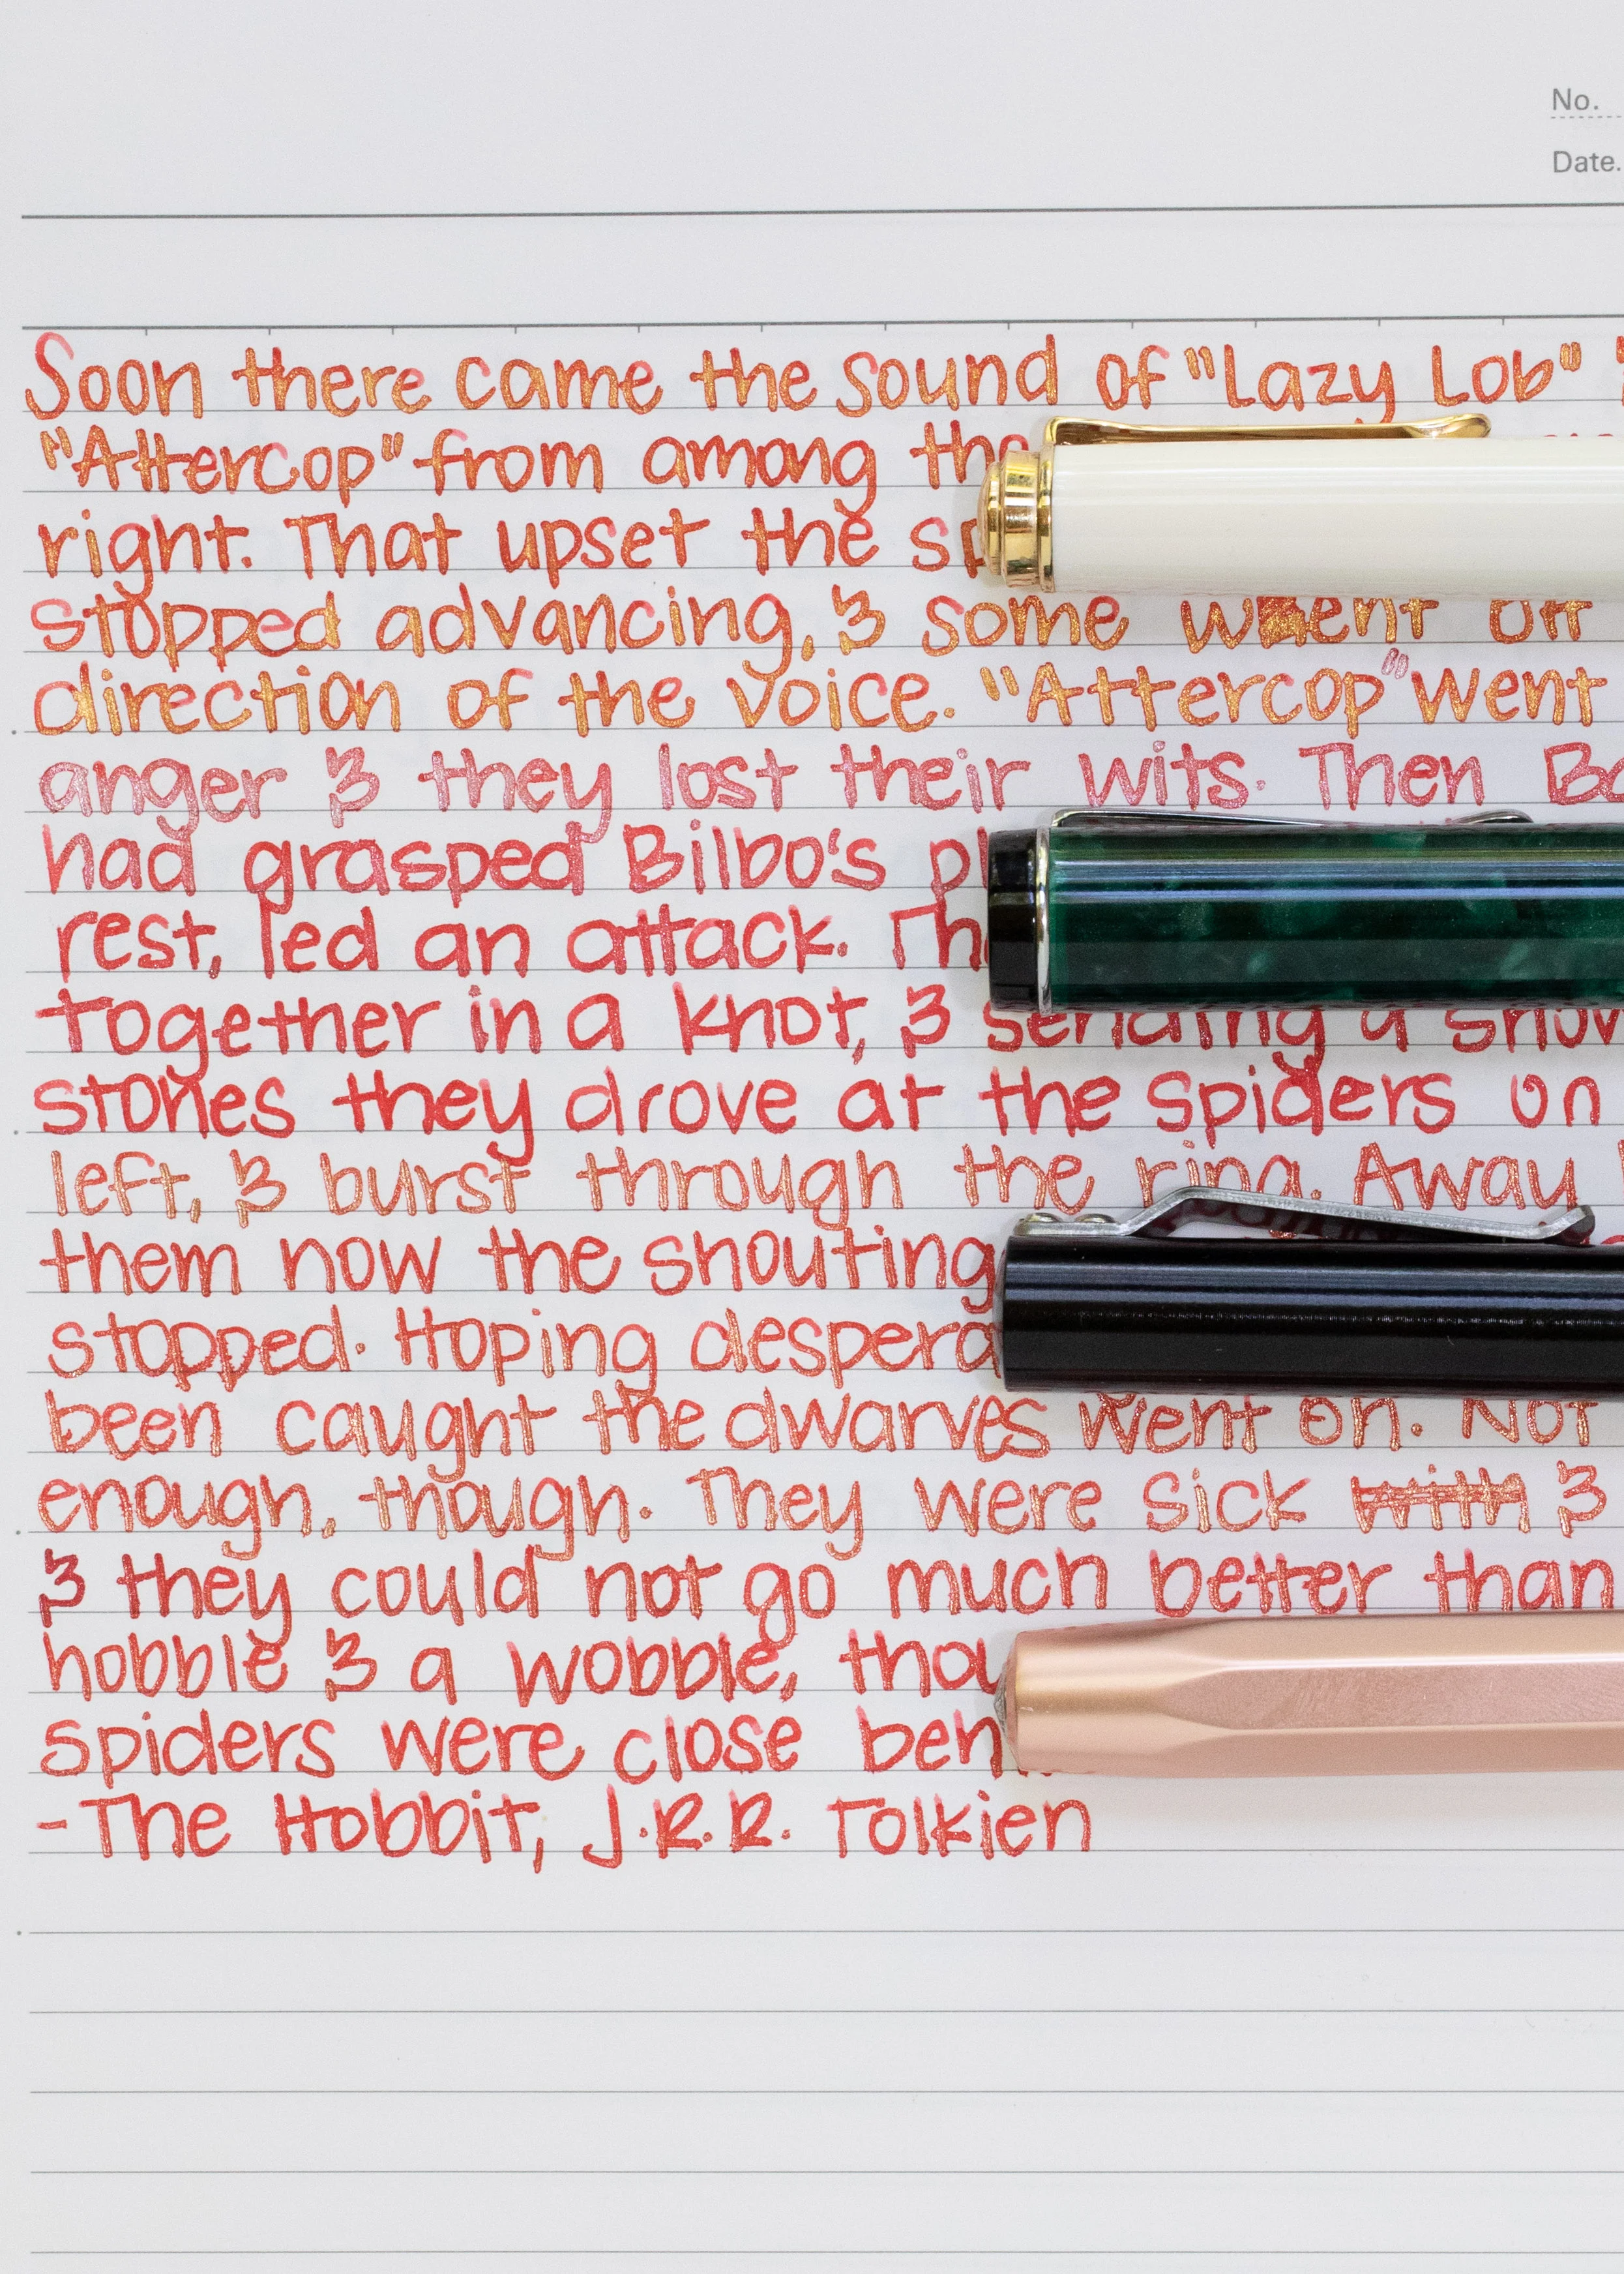 No.
Date.
Soon there came the sound of "Lazy Lob"
"Attercop" from among the
right. That upset the
stopped advancing, & some went off
direction of the voice. "Attercop" went
anger & they lost their wits. Then
had grasped Bilbo's
rest, led an attack.
together in a knot, & sending a
stones they drove at the spiders on
left, & burst through the ring. Away
them now the shouting
stopped. Hoping
been caught the dwarves went on. Not
enough, though. They were sick with &
& they could not go much better than
hobble & a wobble,
spiders were close
-The Hobbit, J.R.R. Tolkien